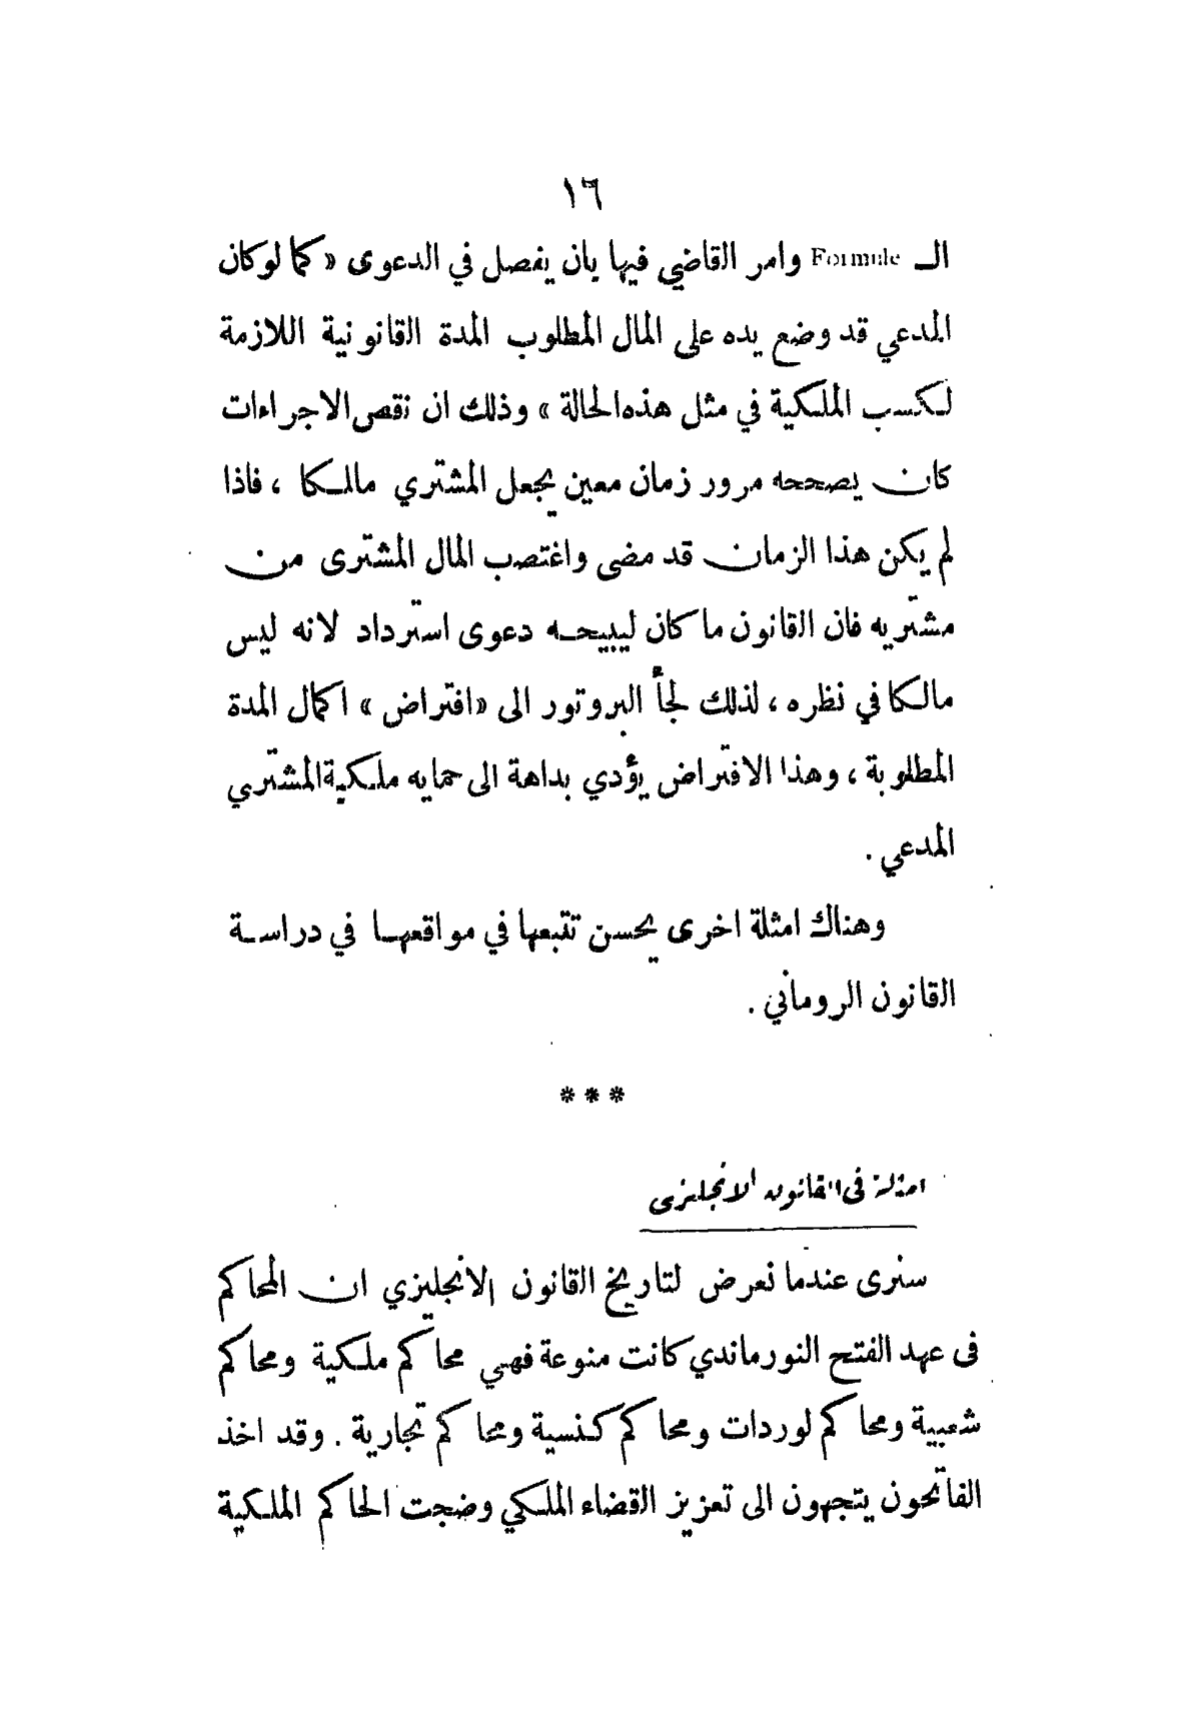 ١٦
الـ Formule وامر القاضي فيها بان يفصل في الدعوى « كما لوكان
المدعي قد وضع يده على المال المطلوب المدة القانونية اللازمة
لكسب الملكية في مثل هذه الحالة » وذلك ان نقص الاجراءات
كان يصححه مرور زمان معين يجعل المشتري مالكا ، فاذا
لم يكن هذا الزمان قد مضى واغتصب المال المشترى من
مشتريه فان القانون ما كان ليبيحه دعوى استرداد لانه ليس
مالكا في نظره ، لذلك لجأ البروتور الى « افتراض » اكمال المدة
المطلوبة ، وهذا الافتراض يؤدي بداهة الى حمايه ملكية المشتري
المدعي .
وهناك امثلة اخرى يحسن تتبعها في مواقعها في دراسة
القانون الروماني .
* * *
امثلة فى القانون الانجليزى
سنرى عندما نعرض لتاريخ القانون الانجليزي ان المحاكم
فى عهد الفتح النورماندي كانت منوعة فهي محاكم ملكية ومحاكم
شعبية ومحاكم لوردات ومحاكم كنسية ومحاكم تجارية . وقد اخذ
الفاتحون يتجهون الى تعزيز القضاء الملكي وضجت الحاكم الملكية